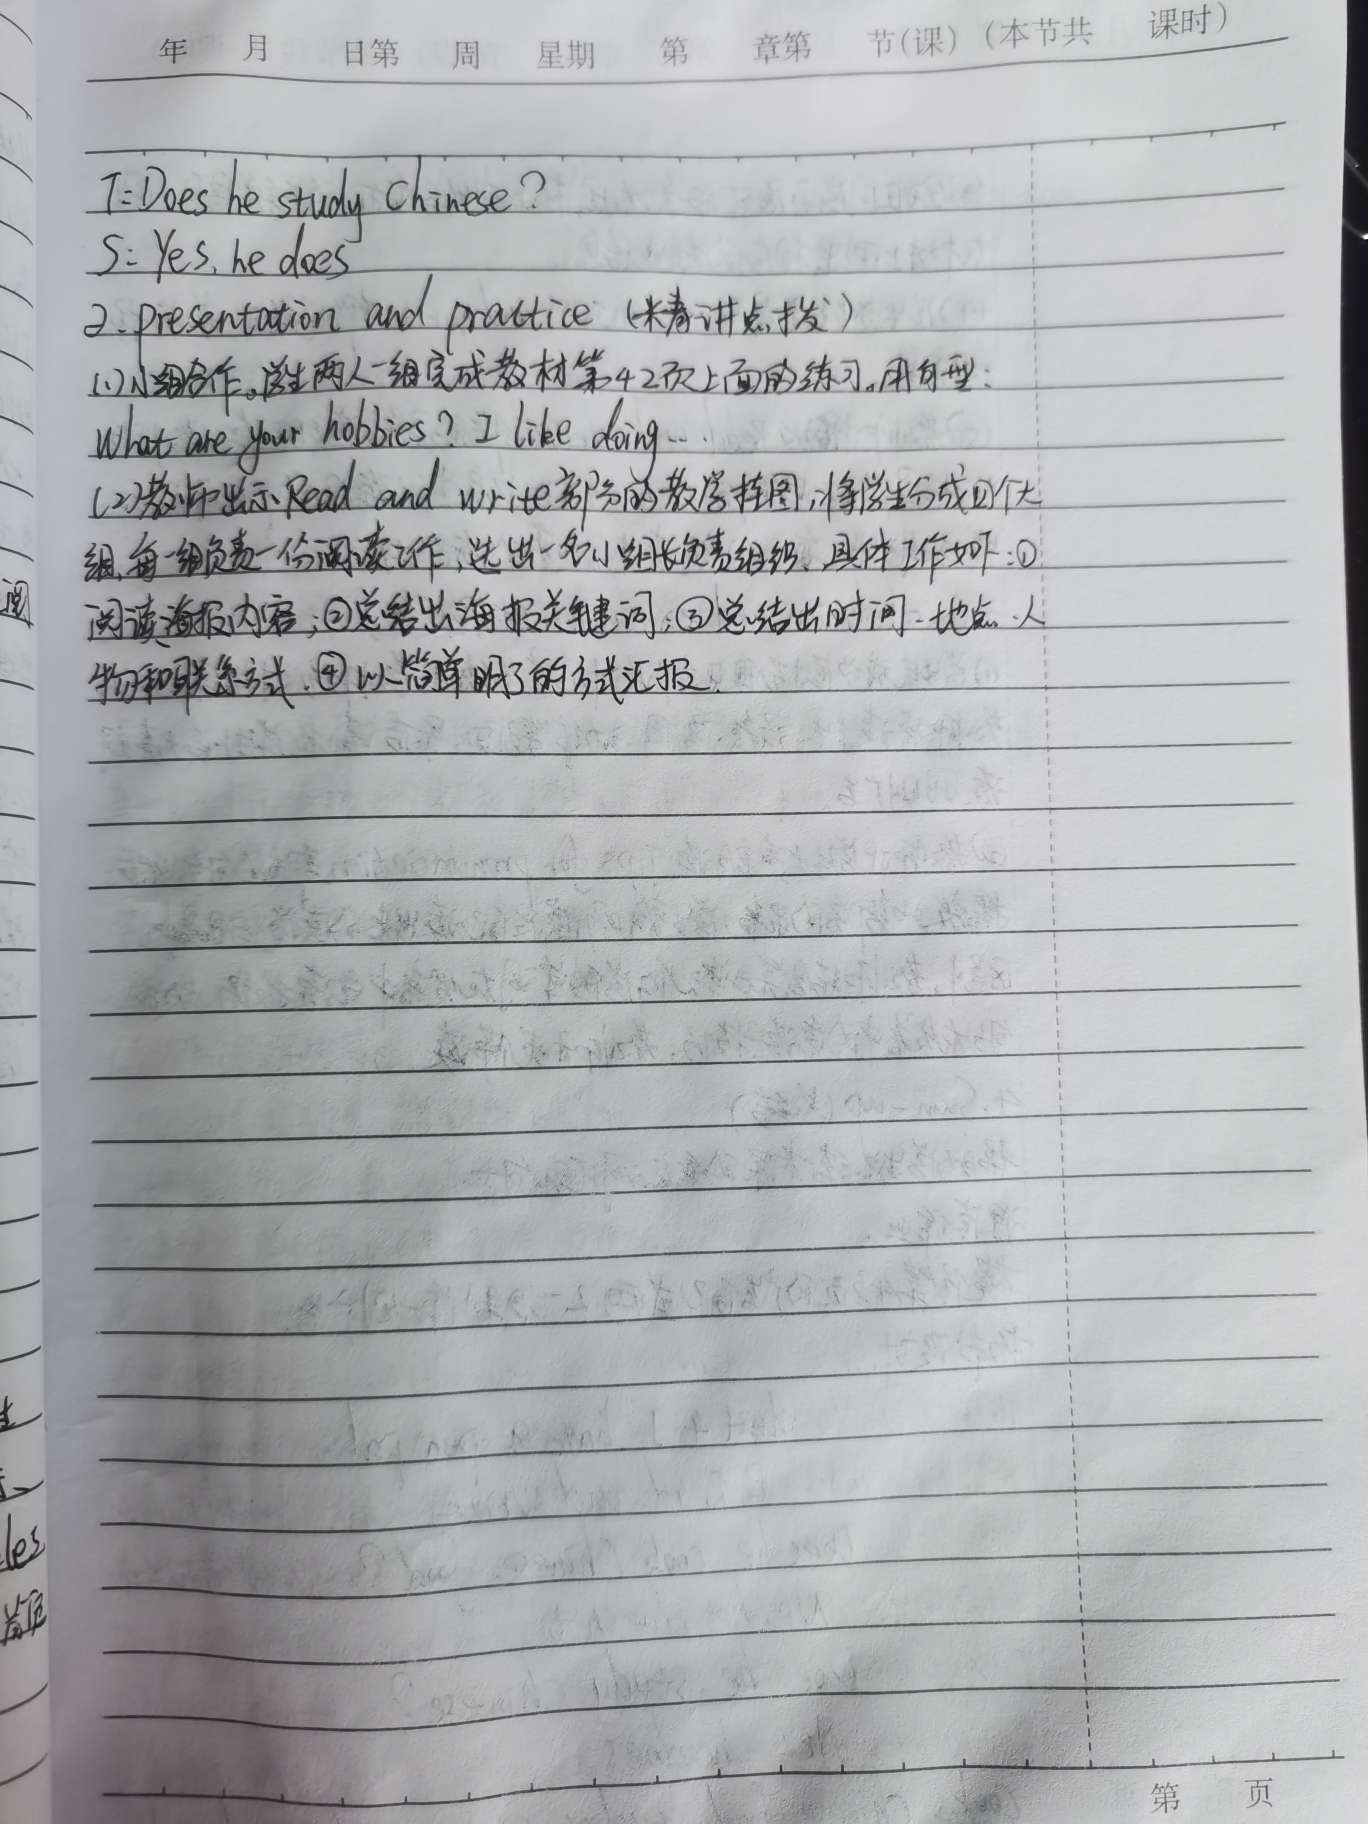 年 月 日第 周 星期 第 章第 节(课) (本节共 课时)
T: Does he study Chinese?
S: Yes, he does
2. presentation and practice (精讲点拨)
(1)小组合作。学生两人一组完成教材第42页上面的练习。用句型:
What are your hobbies? I like doing...
(2)教师出示Read and write部分的教学挂图,将学生分成四个大
组,每一组负责一份阅读工作,选出一名小组长负责组织、具体工作如下:①
阅读海报内容;②总结出海报关键词;③总结出时间、地点、人
物和联系方式.④以简单明了的方式汇报.
第 页